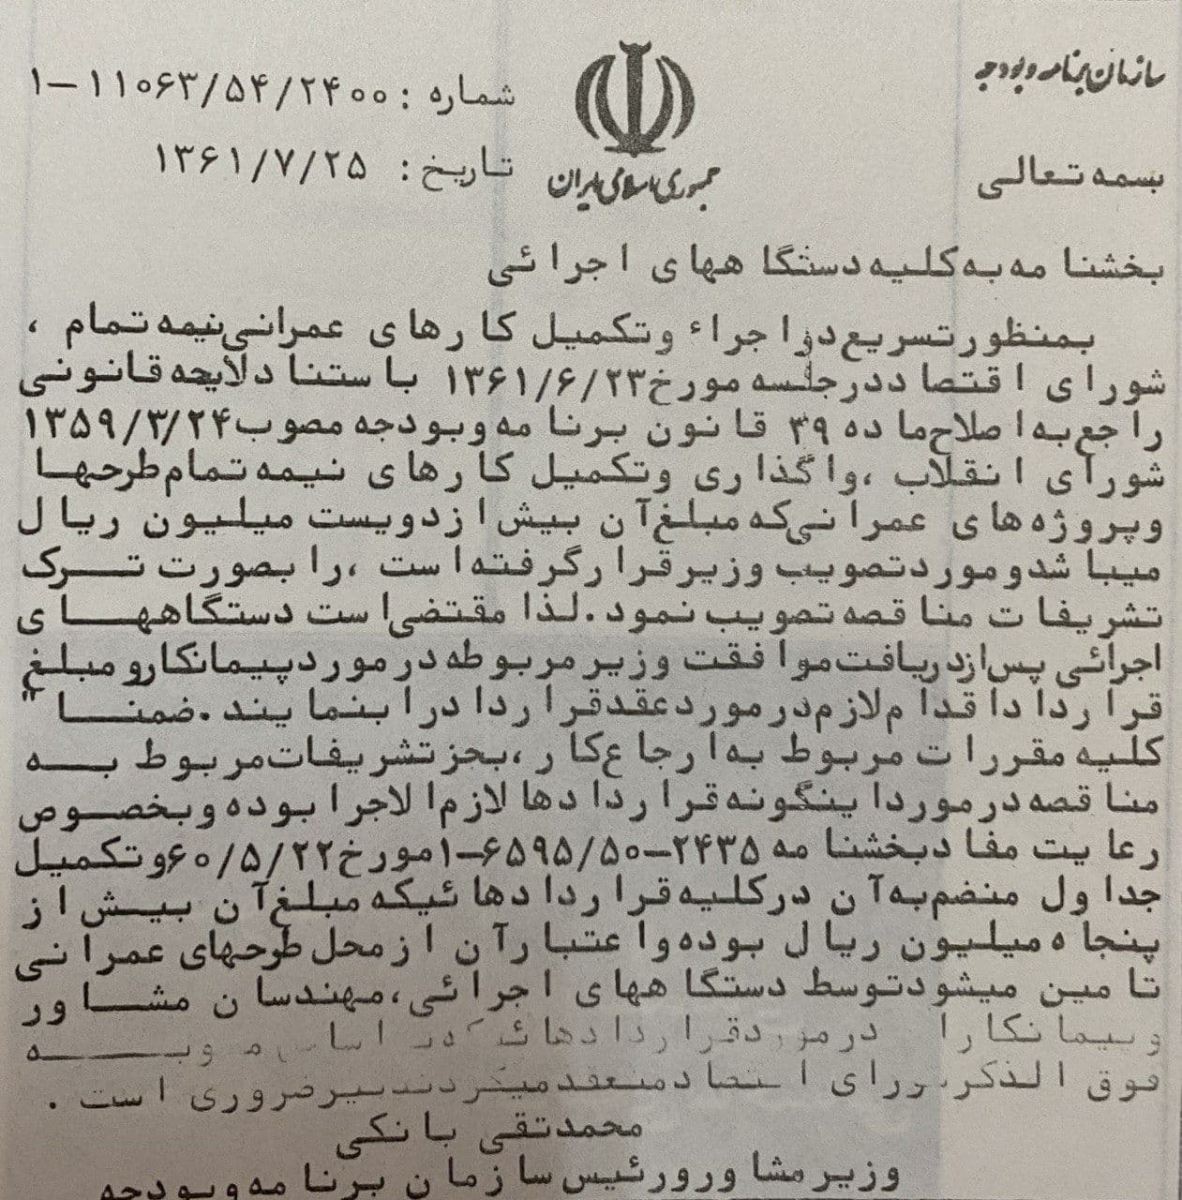 سازمان برنامه و بودجه
شماره : ۱۱۰۶۳/۵۴/۲۴۰۰-۱
تاریخ : ۱۳۶۱/۷/۲۵
جمهوری اسلامی ایران
بسمه تعالی
بخشنامه به کلیه دستگاههای اجرائی
بمنظور تسریع در اجراء و تکمیل کارهای عمرانی نیمه تمام ،
شورای اقتصاد در جلسه مورخ ۱۳۶۱/۶/۲۳ باستناد لایحه قانونی
راجع به اصلاح ماده ۳۹ قانون برنامه و بودجه مصوب ۱۳۵۹/۳/۲۴
شورای انقلاب ، واگذاری و تکمیل کارهای نیمه تمام طرحها
و پروژه های عمرانی که مبلغ آن بیش از دویست میلیون ریال
میباشد و مورد تصویب وزیر قرار گرفته است ، را بصورت ترک
تشریفات مناقصه تصویب نمود . لذا مقتضی است دستگاههای
اجرائی پس از دریافت موافقت وزیر مربوطه در مورد پیمانکار و مبلغ
قرارداد اقدام لازم در مورد عقد قرارداد را بنمایند . ضمنا"
کلیه مقررات مربوط به ارجاع کار ، بجز تشریفات مربوط به
مناقصه در مورد اینگونه قراردادها لازم الاجرا بوده و بخصوص
رعایت مفاد بخشنامه ۲۴۳۵-۶۵۹۵/۵۰-۱ مورخ ۶۰/۵/۲۲ و تکمیل
جداول منضم به آن در کلیه قراردادهائیکه مبلغ آن بیش از
پنجاه میلیون ریال بوده و اعتبار آن از محل طرحهای عمرانی
تامین میشود توسط دستگاههای اجرائی ، مهندسان مشاور
و پیمانکاران در مورد قراردادهائیکه بر اساس مصوبه
فوق الذکر شورای اقتصاد منعقد میگردند نیز ضروری است .
محمدتقی بانکی
وزیر مشاور و رئیس سازمان برنامه و بودجه